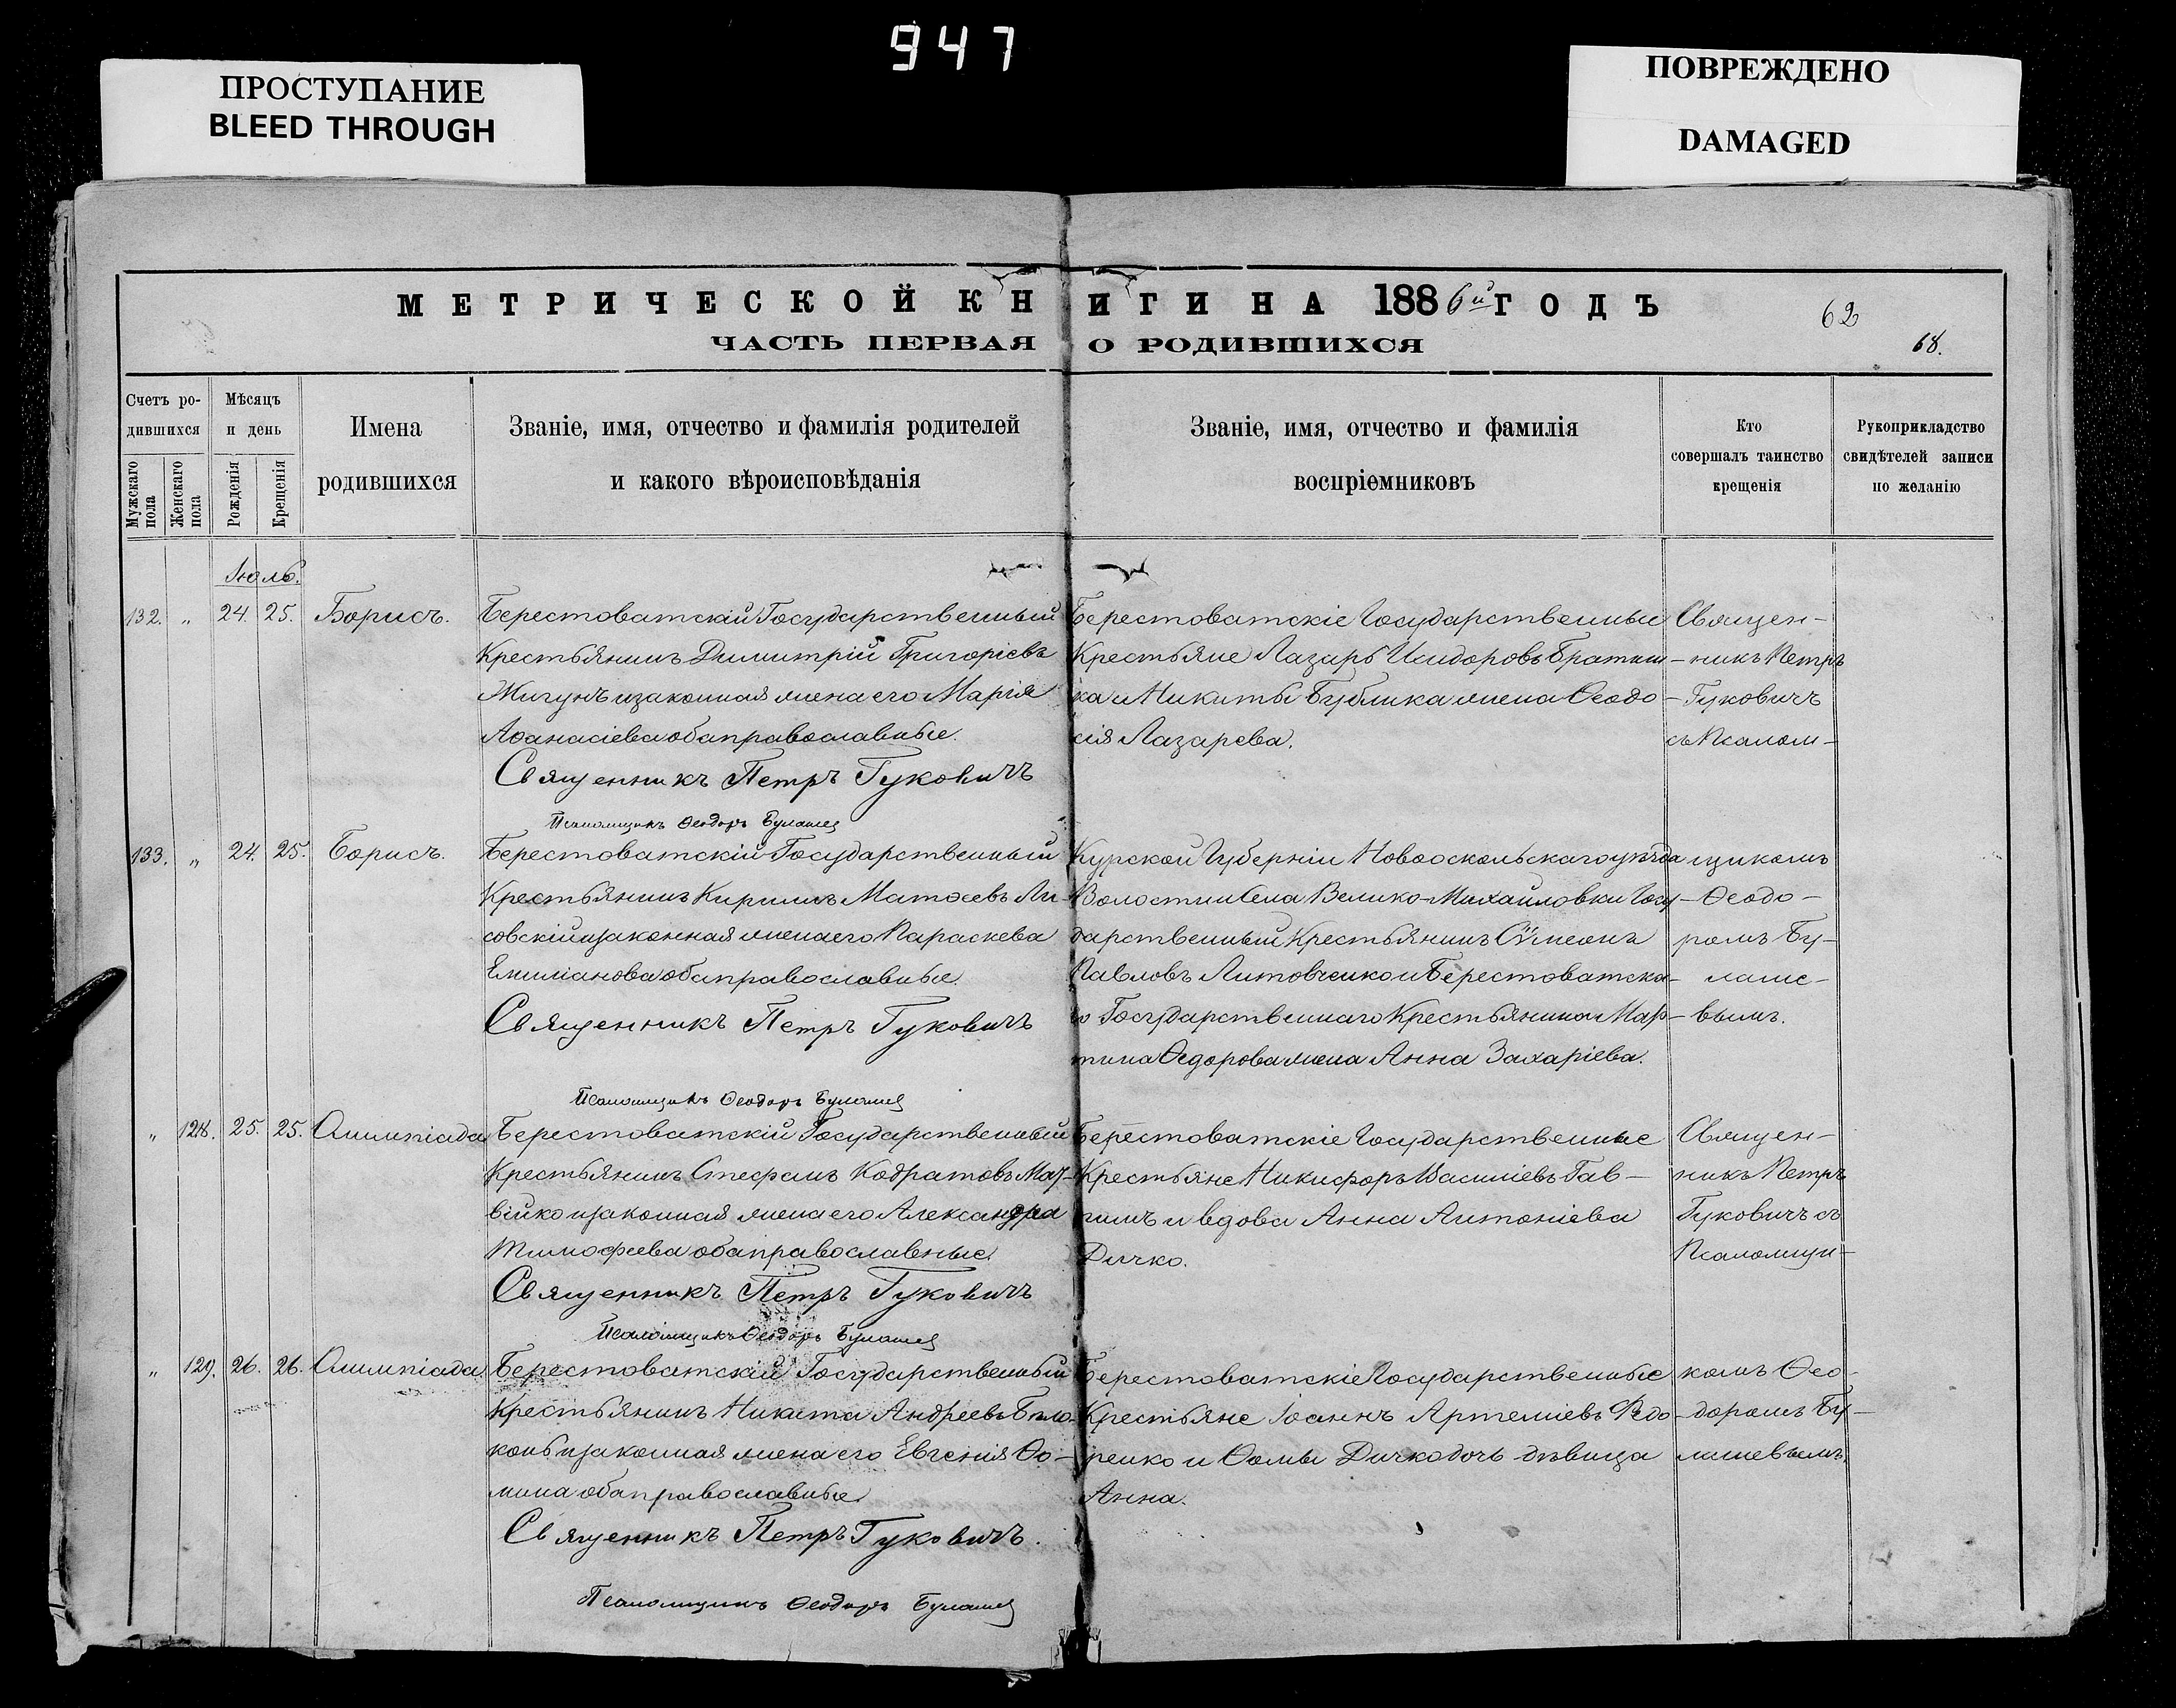 947
ПРОСТУПАНИЕ
BLEED THROUGH
ПОВРЕЖДЕНО
DAMAGED
МЕТРИЧЕСКОЙ КНИГИ НА 1886й ГОДЪ
62
ЧАСТЬ ПЕРВАЯ О РОДИВШИХСЯ
68.
Счетъ ро-
дившихся
Мужскаго пола
Женскаго пола
Мѣсяцъ
и день
Рожденія
Крещенія
Имена
родившихся
Званіе, имя, отчество и фамилія родителей
и какого вѣроисповѣданія
Званіе, имя, отчество и фамилія
воспріемниковъ
Кто
совершалъ таинство
крещенія
Рукоприкладство
свидѣтелей записи
по желанію
Іюль.
132. „ 24. 25. Борисъ.
Берестоватскій Государственный
Крестьянинъ Димитрій Григоріевъ
Жигунъ и законная жена его Марія
Аѳанасіева оба православные.
Священникъ Петръ Гуковичъ
Псаломщикъ Ѳеодоръ Булашев
Берестоватскіе Государственные
Крестьяне Лазарь Исидоровъ Братиш-
ка и Никиты Бублика жена Ѳеодо-
сія Лазарева.
Священ-
никъ Петръ
Гуковичъ
съ Псалом-
133. „ 24. 25. Борисъ.
Берестоватскій Государственный
Крестьянинъ Кирилъ Матѳеевъ Ли-
совскій и законная жена его Параскева
Емиліанова оба православные.
Священникъ Петръ Гуковичъ
Псаломщикъ Ѳеодоръ Булашев
Курской Губерніи Новооскольскаго уѣзда
Волости и села Велико-Михайловки Госу-
дарственный Крестьянинъ Сѵмеонъ
Павловъ Литовченко и Берестоватска-
го Государственнаго Крестьянина Мар-
тина Ѳедорова жена Анна Захаріева.
щикомъ
Ѳеодо-
ромъ Бу-
лаше-
вымъ.
„ 128. 25. 25. Олимпіада
Берестоватскій Государственный
Крестьянинъ Стефанъ Кодратовъ
війко и законная жена его Александра
Тимофеева оба православные.
Священникъ Петръ Гуковичъ
Псаломщикъ Ѳеодоръ Булашев
Берестоватскіе Государственные
Крестьяне Никифоръ Василіевъ Гав-
и вдова Анна Антоніева
Дичко.
Священ-
никъ Петръ
Гуковичъ съ
Псаломщи-
„ 129. 26. 26. Олимпіада
Берестоватскій Государственный
Крестьянинъ Никита Андреевъ Било-
конь и законная жена его Евгенія Ѳо-
мина оба православные.
Священникъ Петръ Гуковичъ.
Псаломщикъ Ѳеодоръ Булашев
Берестоватскіе Государственные
Крестьяне Іоаннъ Артеміевъ Федо-
ренко и Ѳомы Дичко дочь дѣвица
Анна.
комъ Ѳео-
доромъ Бу-
лашевымъ.